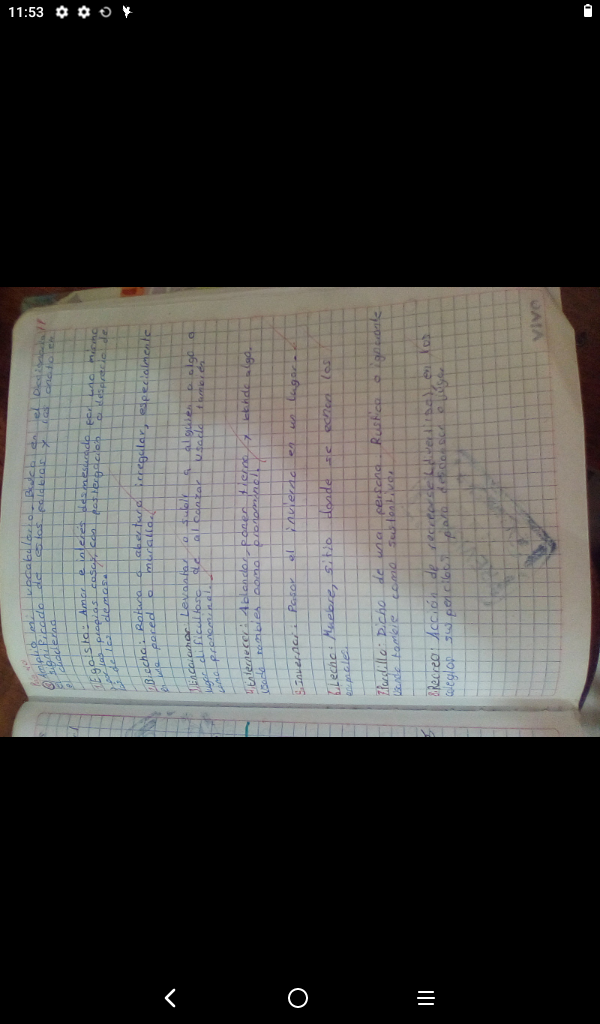 11:53
Amplío mi vocabulario. Busca en el diccionario el
significado de estas palabras y las anota en
el cuaderno
1. Egoísta: Amor e interes desmesurado por uno mismo
y las propias cosas, con postergación o desprecio de
los de los demas.
2. Brecha: Rotura o abertura irregular, especialmente
en una pared o muralla.
3. Encaramar: Levantar o subir a alguien o algo a
lugar dificultoso de alcanzar usado también
como pronominal.
4. Enternecer: Ablandar, poner tierno y blando algo.
Usado también como pronominal.
5. Invernar: Pasar el invierno en un lugar.
6. Lecho: Muebre, sitio donde se echan los
animales.
7. Dicho de una persona Rústica o ignorante
Usado también como sustantivo.
8. Recreo: Acción de recrearse (divertirse), en los
colegios suspención para descansar o jugar
VIVO